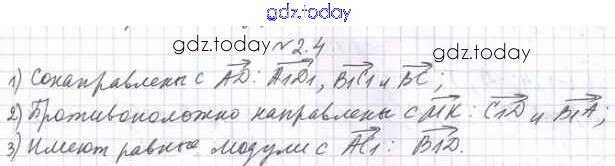 gdz.today
gdz.today №2.4 gdz.today
1) Сонаправлены с AD: A1D1, B1C1 и BC;
2) Противоположно направлены с MK: C1D и B1A;
3) Имеют равные модули с AC1: B1D.